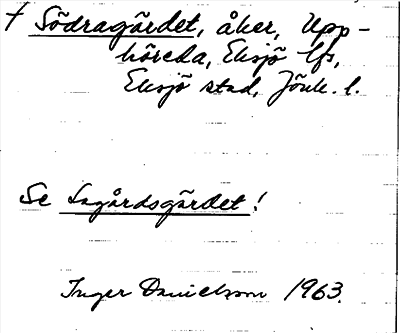 † Södragärdet, åker, Upp-
höreda, Eksjö lfs,
Eksjö stad, Jönk. l.
Se Lagårdsgärdet!
Inger Danielsson 1963.